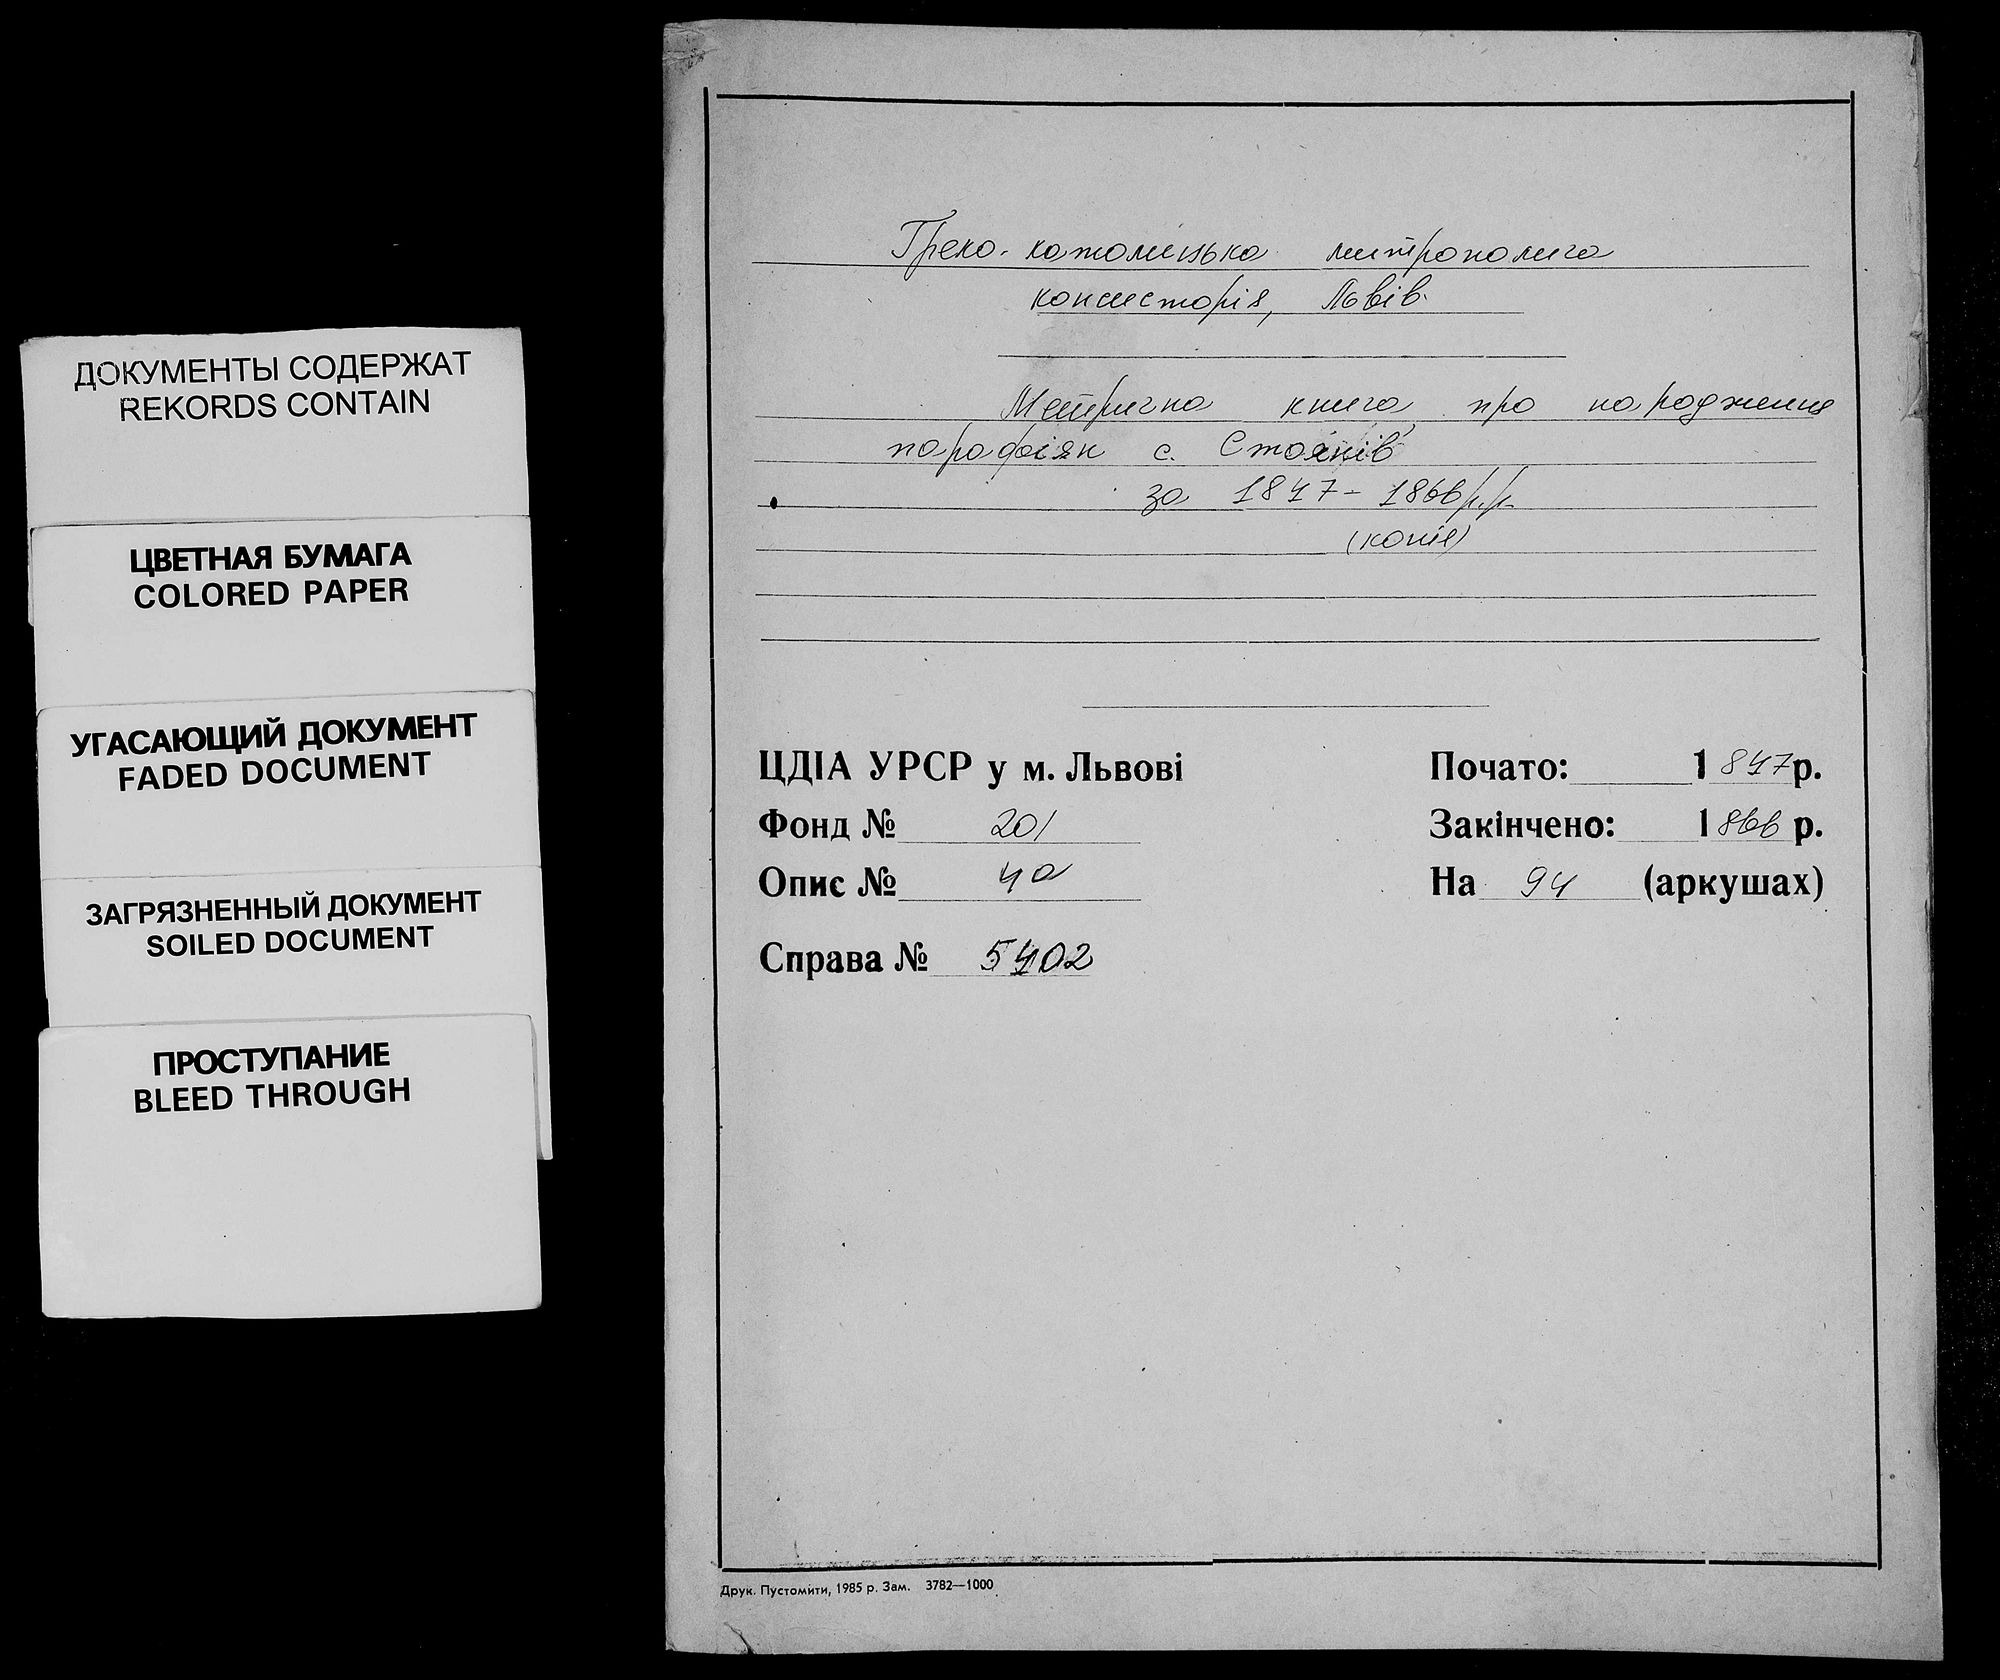 ДОКУМЕНТЫ СОДЕРЖАТ
REKORDS CONTAIN
ЦВЕТНАЯ БУМАГА
COLORED PAPER
УГАСАЮЩИЙ ДОКУМЕНТ
FADED DOCUMENT
ЗАГРЯЗНЕННЫЙ ДОКУМЕНТ
SOILED DOCUMENT
ПРОСТУПАНИЕ
BLEED THROUGH
Греко-католицька митрополича
консисторія, Львів.
Метрична книга про народження
парафіян с. Стоянів
за 1847-1866 р.р.
(копія)
ЦДІА УРСР у м. Львові
Фонд № 201
Опис № 4а
Справа № 5402
Почато: 1847 р.
Закінчено: 1866 р.
На 94 (аркушах)
Друк. Пустомити, 1985 р. Зам. 3782—1000